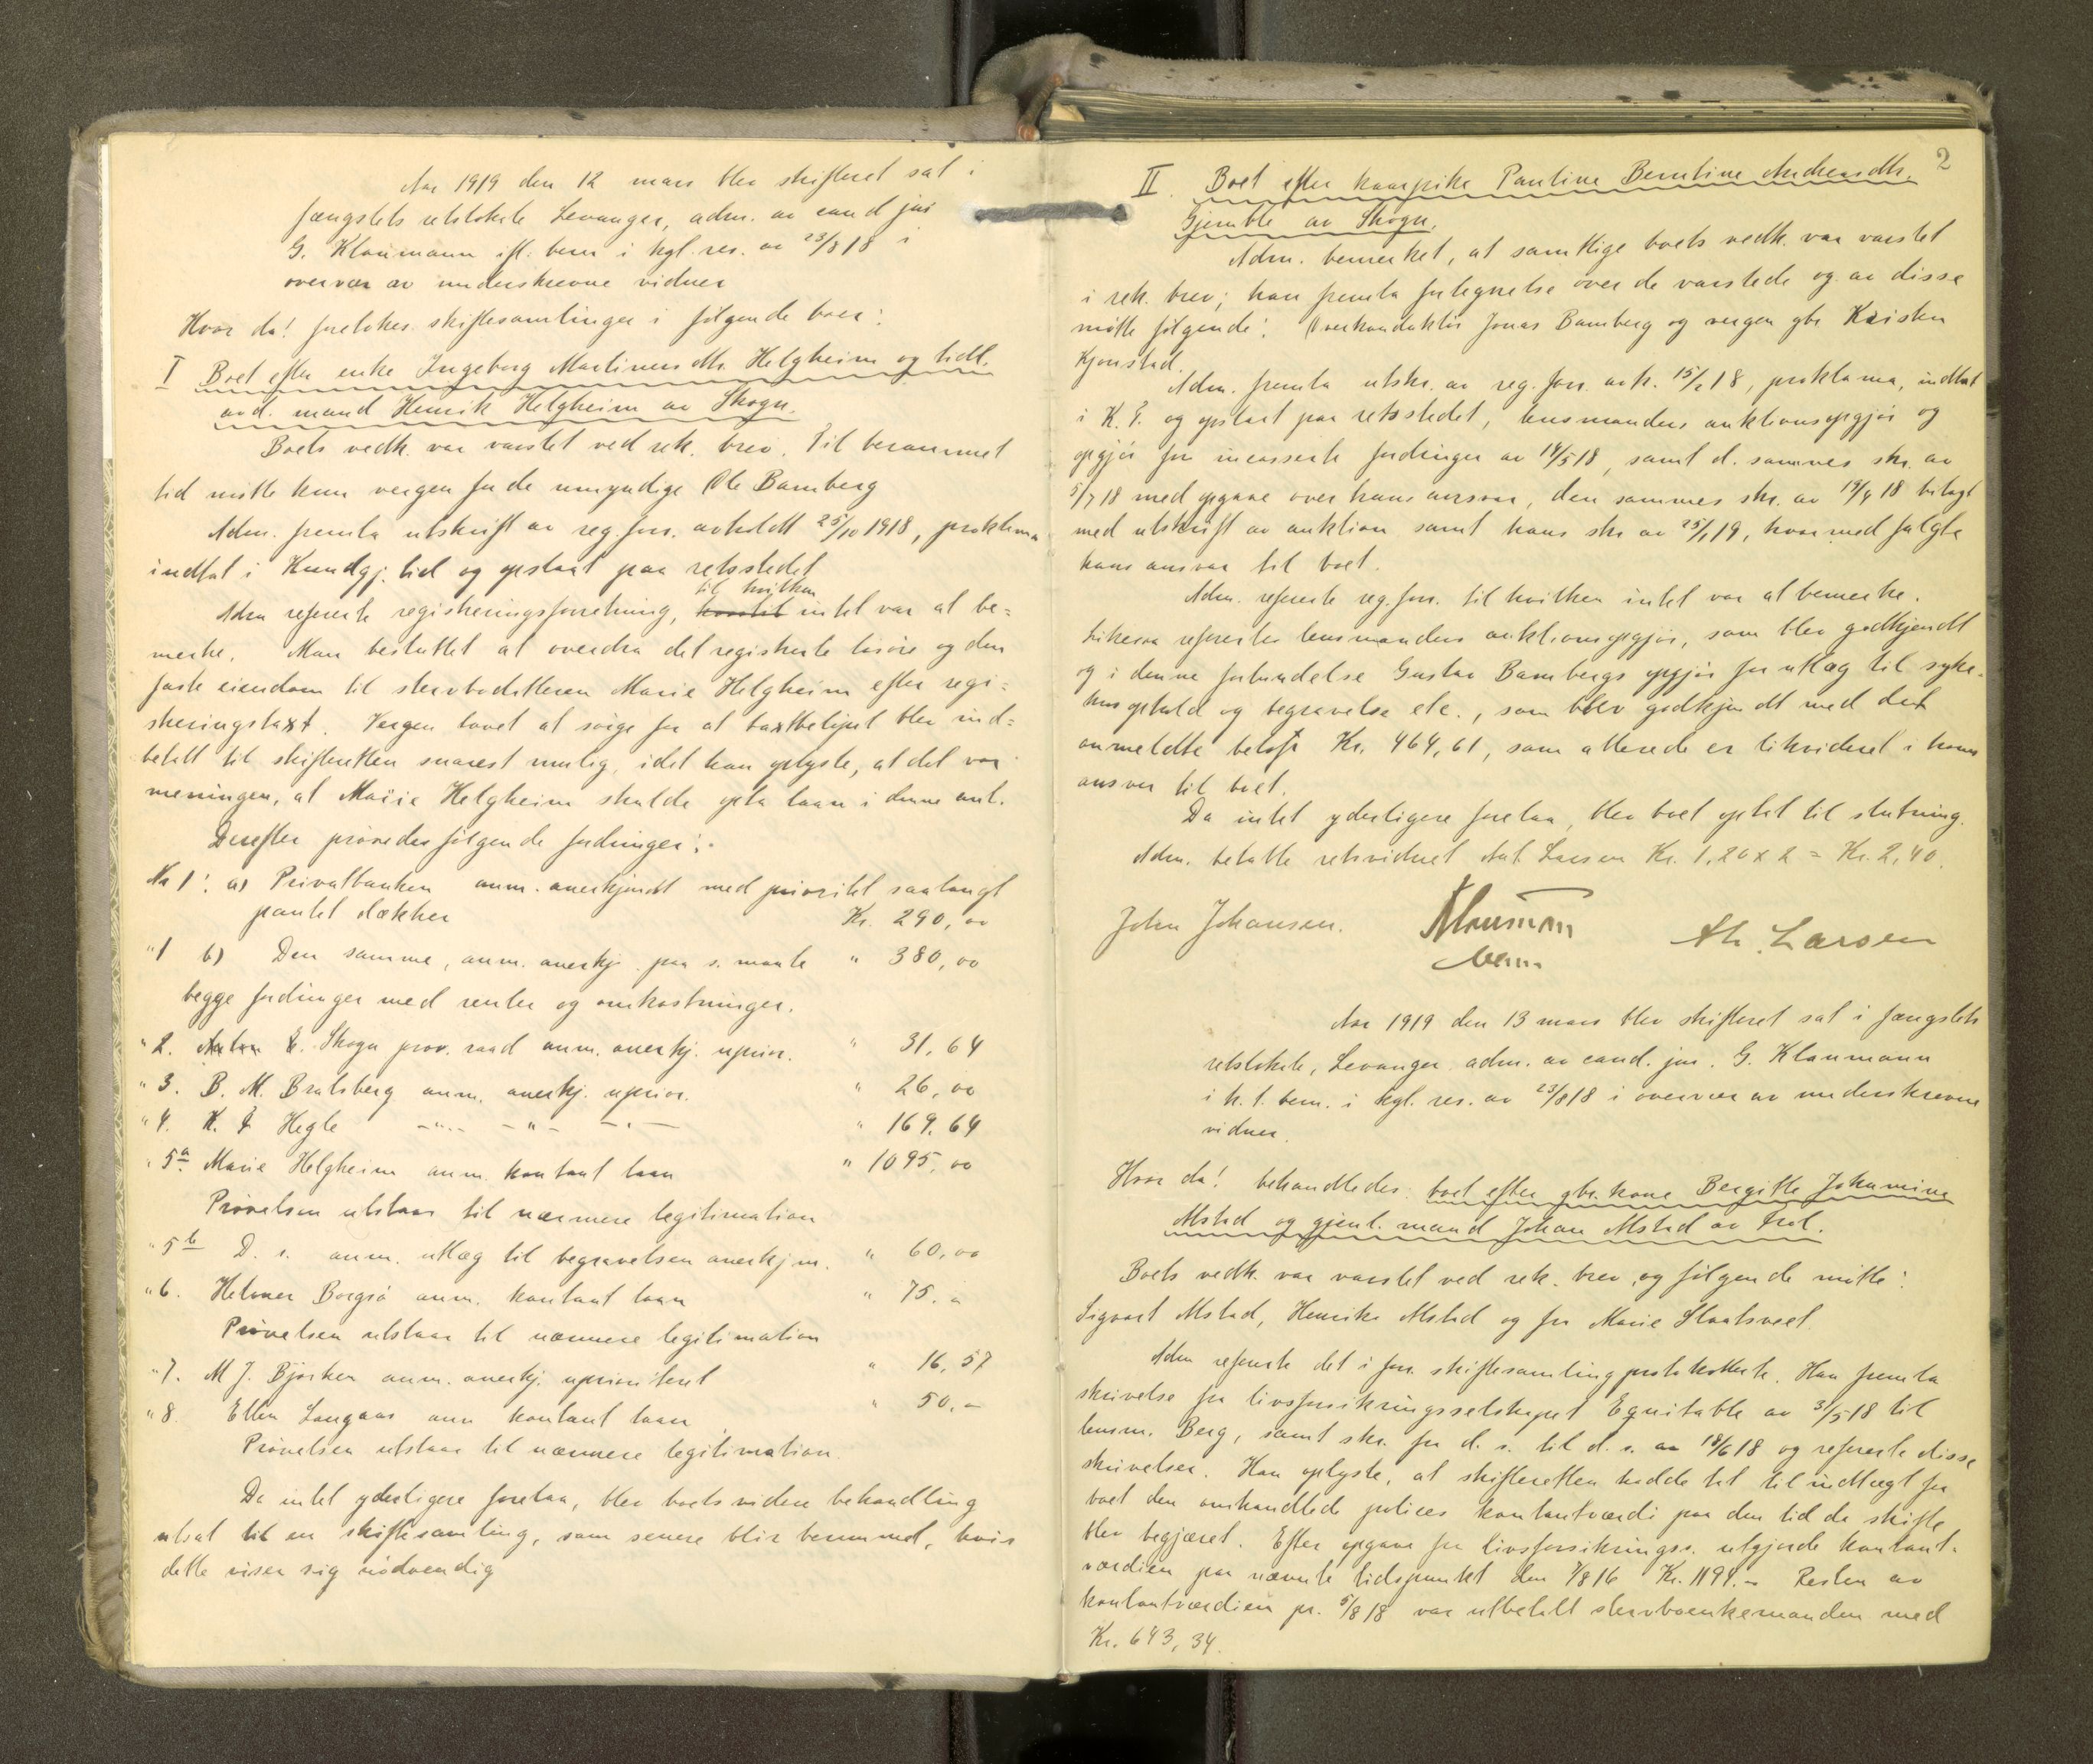 Aar 1919 den 12 mars blev skifteret sat i
fængslets retslokale Levanger, adm. av cand jur
G. Klaumann ifl. bem i kgl. res. av 23/8 18 i
overvær av underskrevne vidner
Hvor da! foretokes skiftesamlinger i følgende boer:
I Boet efter enke Ingeborg Martinusdtr. Helgheim og tidl.
avd. mand Henrik Helgheim av Skogn.
Boets vedk. var varslet ved rek. brev. Til berammet
tid møtte kun vergen for de umyndige Ole Bamberg
Adm. fremla utskrift av reg. forr. avholdt 25/10 1918, proklama
indtat i Kundgj. tid og opslaat paa retsstedet
til hvilken
Adm refererte registreringsforretning, intet var at be=
merke. Man besluttet at overdra det registrerte løsøre og den
faste eiendom til stervbodatteren Marie Helgheim efter regi=
streringstaxt. Vergen lovet at sørge for at taxtbeløpet blev ind=
betalt til skifteretten snarest mulig, idet han oplyste, at det var
meningen, at Marie Helgheim skulde opta laan i denne anl.
Derefter prøvedes følgende fordringer:
Nr 1: a) Privatbanken anm. anerkjendt med prioritet saalangt
pantet dækker Kr. 290,00
" 1 b) Den samme, anm. anerkj. paa s. maate " 380,00
begge fordringer med renter og omkostninger.
" 2. Anton E. Skogn prov. raad anm. anerkj. uprior. " 31,64
" 3. B. M. Bratsberg anm. anerkj. uprior. " 26,00
" 4. K. Hegle -"- -"- -"- " 169,64
" 5a Marie Helgheim anm. kontant laan " 1095,00
Prøvelsen utstaar til nærmere legitimation
" 5b D. s. anm. utlæg til begravelsen anerkjen. " 60,00
" 6. Helmer Borgsø anm. kontant laan " 75,-
Prøvelsen utstaar til nærmere legitimation
" 7. M J. Bjørken anm. anerkj. uprioriteret " 16,57
" 8. Ellen Langaas anm kontant laan " 50,-
Prøvelsen utstaar til nærmere legitimation
Da intet yderligere forelaa, blev boets videre behandling
utsat til en skiftesamling, som senere blir berammet, hvis
dette viser sig nødvendig
2
II Boet efter kaarpike Pauline Berntine Andreasdtr.
Gjemble av Skogn.
Adm. bemerket, at samtlige boets vedk. var varslet
i rek. brev; han fremla fortegnelse over de varslede og av disse
møtte følgende: Overkonduktør Jonas Bamberg og vergen gbr. Kristen
Kjønstad.
Adm. fremla utskr. av reg. forr. avh. 15/2 18, proklama, indtat
i K. T. og opslaat paa retsstedet, lensmandens auktionsopgjør og
opgjør for incasserte fordringer av 14/5 18, samt d. sammes skr. av
5/7 18 med opgave over hans ansvar, den sammes skr. av 19/9 18 bilagt
med utskrift av auktion samt hans skr av 25/1 19, hvormed fulgte
hans ansvar til boet.
Adm. refererte reg. forr. til hvilken intet var at bemerke.
Likesaa refertes lensmandens auktionsopgjør, som blev godkjendt
og i denne forbindelse Gustav Bambergs opgjør for utlæg til syke-
husophold og begravelse etc., som blev godkjendt med det
anmeldte beløp Kr. 464,61, som allerede er likvideret i hans
ansvar til boet.
Da intet yderligere forelaa, blev boet optat til slutning.
Adm. betalte retsvidnet Ant. Larsen Kr. 1,20 x 2 = Kr. 2,40.
John Johansen. Klaumann Ah. Larsen
bem.
Aar 1919 den 13 mars blev skifteret sat i fængslets
retslokale, Levanger adm. av cand. jur. G. Klaumann
i h. t. bem. i kgl. res. av 23/8 18 i overvær av underskrevne
vidner.
Hvor da! behandledes: boet efter gbr. kone Bergitte Johannine
Alstad og gjenl. mand Johan Alstad av Frol.
Boets vedk. var varslet ved rek. brev, og følgende møtte:
Sigvart Alstad, Henrike Alstad og fru Marie Slaatsveet
Adm refererte det i forr. skiftesamling protokollerte. Han fremla
skrivelse fra livsforsikringsselskapet Equitable av 31/5 18 til
lensm. Berg, samt skr. fra d. s. til d. s. av 18/6 18 og refererte disse
skrivelser. Han oplyste, at skifteretten hadde tat til indtægt for
boet den omhandlede polices kontantværdi paa den tid da skifte
blev begjæret. Efter opgave fra livsforsikringss. utgjorde kontant-
værdien paa nævnte tidspunkt den 7/8 16 Kr. 1194.- Resten av
kontantværdien pr. 5/8 18 var utbetalt stervboenkemanden med
Kr. 643,34.